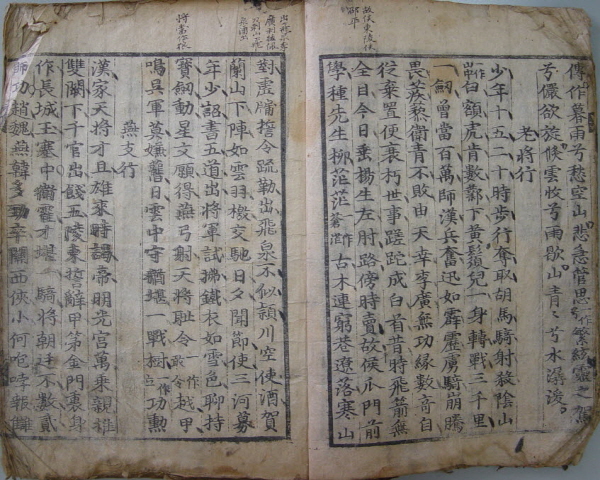 故侯東陵侯
邵平
傳作暮雨兮愁空山悲急管思作繁絃靈之駕
兮儼欲旋倏雲收兮雨歇山青青兮水潺湲
老將行
少年十五二十時步行奪取胡馬騎射殺陰山
作白額虎肯數鄴下黃鬚兒一身轉戰三千里
一劒曾當百萬師漢兵奮迅如霹靂虜騎崩騰
畏蒺藜衛青不敗由天幸李廣無功緣數奇自
從棄置便衰朽世事蹉跎成白首昔時飛箭無
全目今日垂楊生左肘路傍時賣故侯瓜門前
學種先生柳茫茫蒼茫作古木連窮巷遼落寒山
對虛牖誓令疏勒出飛泉不似潁川空使酒賀
蘭山下陣如雲羽檄交馳日夕聞節使三河募
年少詔書五道出將軍試拂鐵衣如雪色聊持
寶劒動星文願得燕弓射天將恥令一作敢令越甲
鳴吾軍莫嫌舊日雲中守猶堪一戰樹作立功勲
燕支行
漢家天將才且雄來時謁帝明光宮萬乘親推
雙闕下千官出餞五陵東誓辭甲第金門裏身
作長城玉塞中衛霍才堪一騎將朝廷不數貳
師功趙魏燕韓多勁卒關西俠少何咆哮報讎